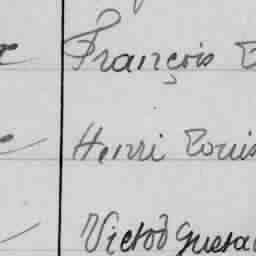 François
Henri Louis
Victor Gusta